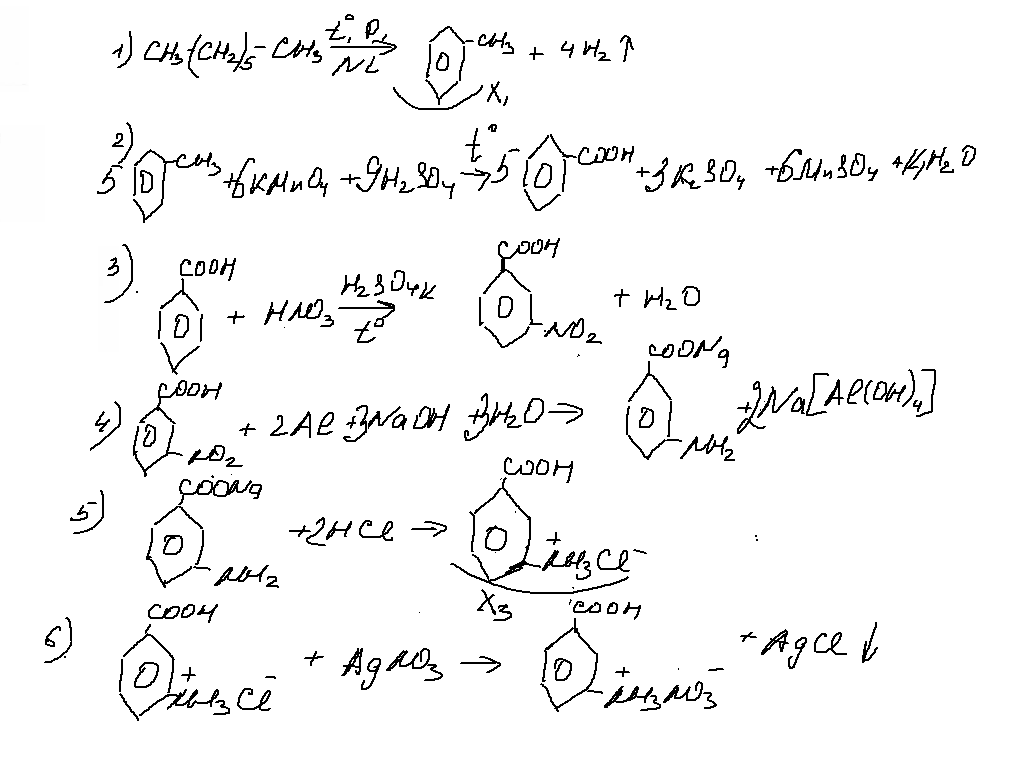 1) CH₃-(CH₂)₅-CH₃ t°, Pt → CH₃ + 4H₂ ↑
X₁
2) 5 CH₃ + 6KMnO₄ + 9H₂SO₄ t° → 5 COOH + 3K₂SO₄ + 6MnSO₄ + 14H₂O
3) COOH + HNO₃ H₂SO₄ к t° → COOH NO₂ + H₂O
4) COOH NO₂ + 2Al + 3NaOH + 3H₂O → COONa NH₂ + 2Na[Al(OH)₄]
5) COONa NH₂ + 2HCl → COOH NH₃⁺Cl⁻
X₃
6) COOH NH₃⁺Cl⁻ + AgNO₃ → COOH NH₃⁺NO₃⁻ + AgCl ↓